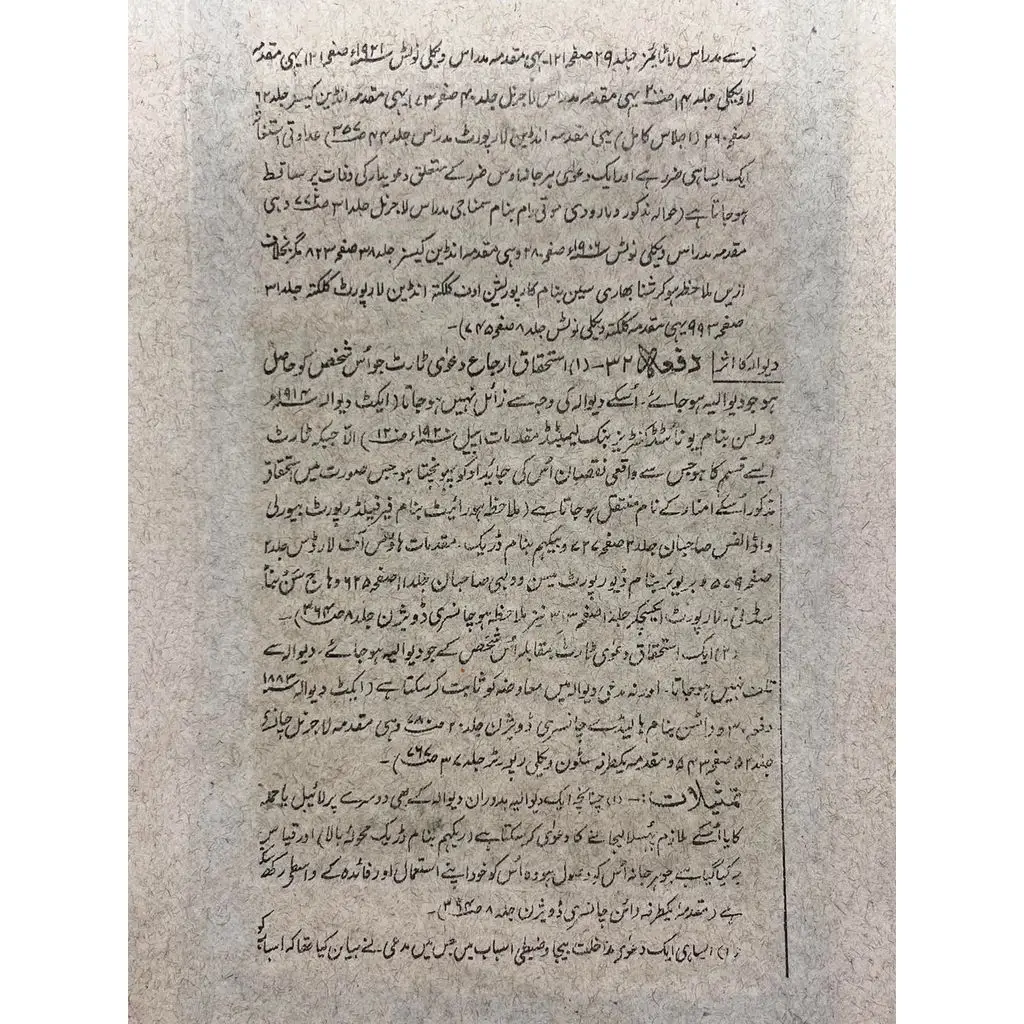 نرسے مدراس لا ٹائمز جلد ۲۹ صفحہ ۱۲۱۔ یہی مقدمہ مدراس ویکلی نوٹس ۱۹۲۱ء صفحہ ۱۲۱ یہی مقدمہ
لا ویکلی جلد ۱۴ ص۲۰ یہی مقدمہ مدراس لا جرنل جلد ۴۰ صفحہ ۱۷۳ یہی مقدمہ انڈین کیسز جلد ۶۲
صفحہ ۲۶۰ (اجلاس کامل) یہی مقدمہ انڈین لا رپورٹ مدراس جلد ۴۴ ص۳۵۷) عداوتی استغاثہ
ایک ایسا ہی ضرر ہے اور ایک دعویٰ ہرجانہ اوس ضرر کے متعلق دعویدار کی وفات پر ساقط
ہو جاتا ہے (حوالہ مذکور و مارودی موتی رام بنام سمناجی مدراس لا جرنل جلد ۳۱ ص۷۷۲ وہی
مقدمہ مدراس ویکلی نوٹس ۱۹۰۶ء صفحہ ۲۸۰ وہی مقدمہ انڈین کیسز جلد ۳۸ صفحہ ۸۲۳ مگر بخلاف
ازیں ملاحظہ ہو کرشنا بھاری سین بنام کارپوریشن اوف کلکتہ انڈین لا رپورٹ کلکتہ جلد ۳۱
صفحہ ۹۹۳ یہی مقدمہ کلکتہ ویکلی نوٹس جلد ۸ صفحہ ۷۴۵)۔
دیوالہ کا اثر دفعہ ۳۲ - (۱) استحقاق ارجاع دعویٰ ٹارٹ جو اُس شخص کو حاصل
ہو جو دیوالیہ ہو جائے۔ اُسکے دیوالہ کی وجہ سے زائل نہیں ہو جاتا (ایکٹ دیوالہ ۱۹۱۴ء
وولسن بنام یونائٹڈ کنٹریز بنک لیمیٹڈ مقدمات اپیل ۱۹۲۰ء ص۱۲) الّا جبکہ ٹارٹ
ایسے قسم کا ہو جس سے واقعی نقصان اُس کی جائیداد کو پہونچتا ہو جس صورت میں استحقاق
مذکور اُسکے امناء کے نام منتقل ہو جاتا ہے (ملاحظہ ہو رائیٹ بنام فیرفیلڈ رپورٹ بیورلی
واڈالفس صاحبان جلد ۲ صفحہ ۷۲۷ و بیکہم بنام ڈریک۔ مقدمات ہاؤس آف لارڈس جلد ۲
صفحہ ۵۷۹ و بریوئر بنام ڈیو رپورٹ میسن و ویلبی صاحبان جلد ۱۱ صفحہ ۶۲۵ و ہاجسن بنام
سڈنی۔ لا رپورٹ ایکسچیکر جلد ۱ صفحہ ۳۱۳ نیز ملاحظہ ہو چانسری ڈویژن جلد ۸ ص۳۶۴)۔
(۲) ایک استحقاق دعویٰ ٹارٹ بمقابلہ اُس شخص کے جو دیوالیہ ہو جائے۔ دیوالہ سے
تلف نہیں ہو جاتا۔ اور نہ مدعی دیوالہ میں معاوضہ کو ثابت کر سکتا ہے (ایکٹ دیوالہ ۱۸۸۳
دفعہ ۳۰ و واٹسن بنام ہالیڈے چانسری ڈویژن جلد ۲۰ ص۷۸۰ وہی مقدمہ لا جرنل چانسری
جلد ۵۲ صفحہ ۵۴۳ و مقدمہ یکطرفہ سٹون ویکلی رپورٹر جلد ۳۷ ص۷۶۷)۔
تمثیلات :- (۱) چنانچہ ایک دیوالیہ بدوران دیوالہ کے بھی دوسرے پر لائیبل یا حملہ
کا یا اُسکے ملازم پُھسلا لیجانے کا دعویٰ کر سکتا ہے (بیکہم بنام ڈریک محولہ بالا) اور قیاس
یہ کیا گیا ہے جو ہرجانہ اُس کو وصول ہو وہ اُس کو خود اپنے استعمال اور فائدہ کے واسطے رکھ سکتا
ہے (مقدمہ یکطرفہ وائن چانسری ڈویژن جلد ۸ ص۳۶۴)۔
(۱) ایسا ہی ایک دعویٰ مداخلت بیجا و ضبطی اسباب میں جس میں مدعی نے بیان کیا تھا کہ اسباب کو